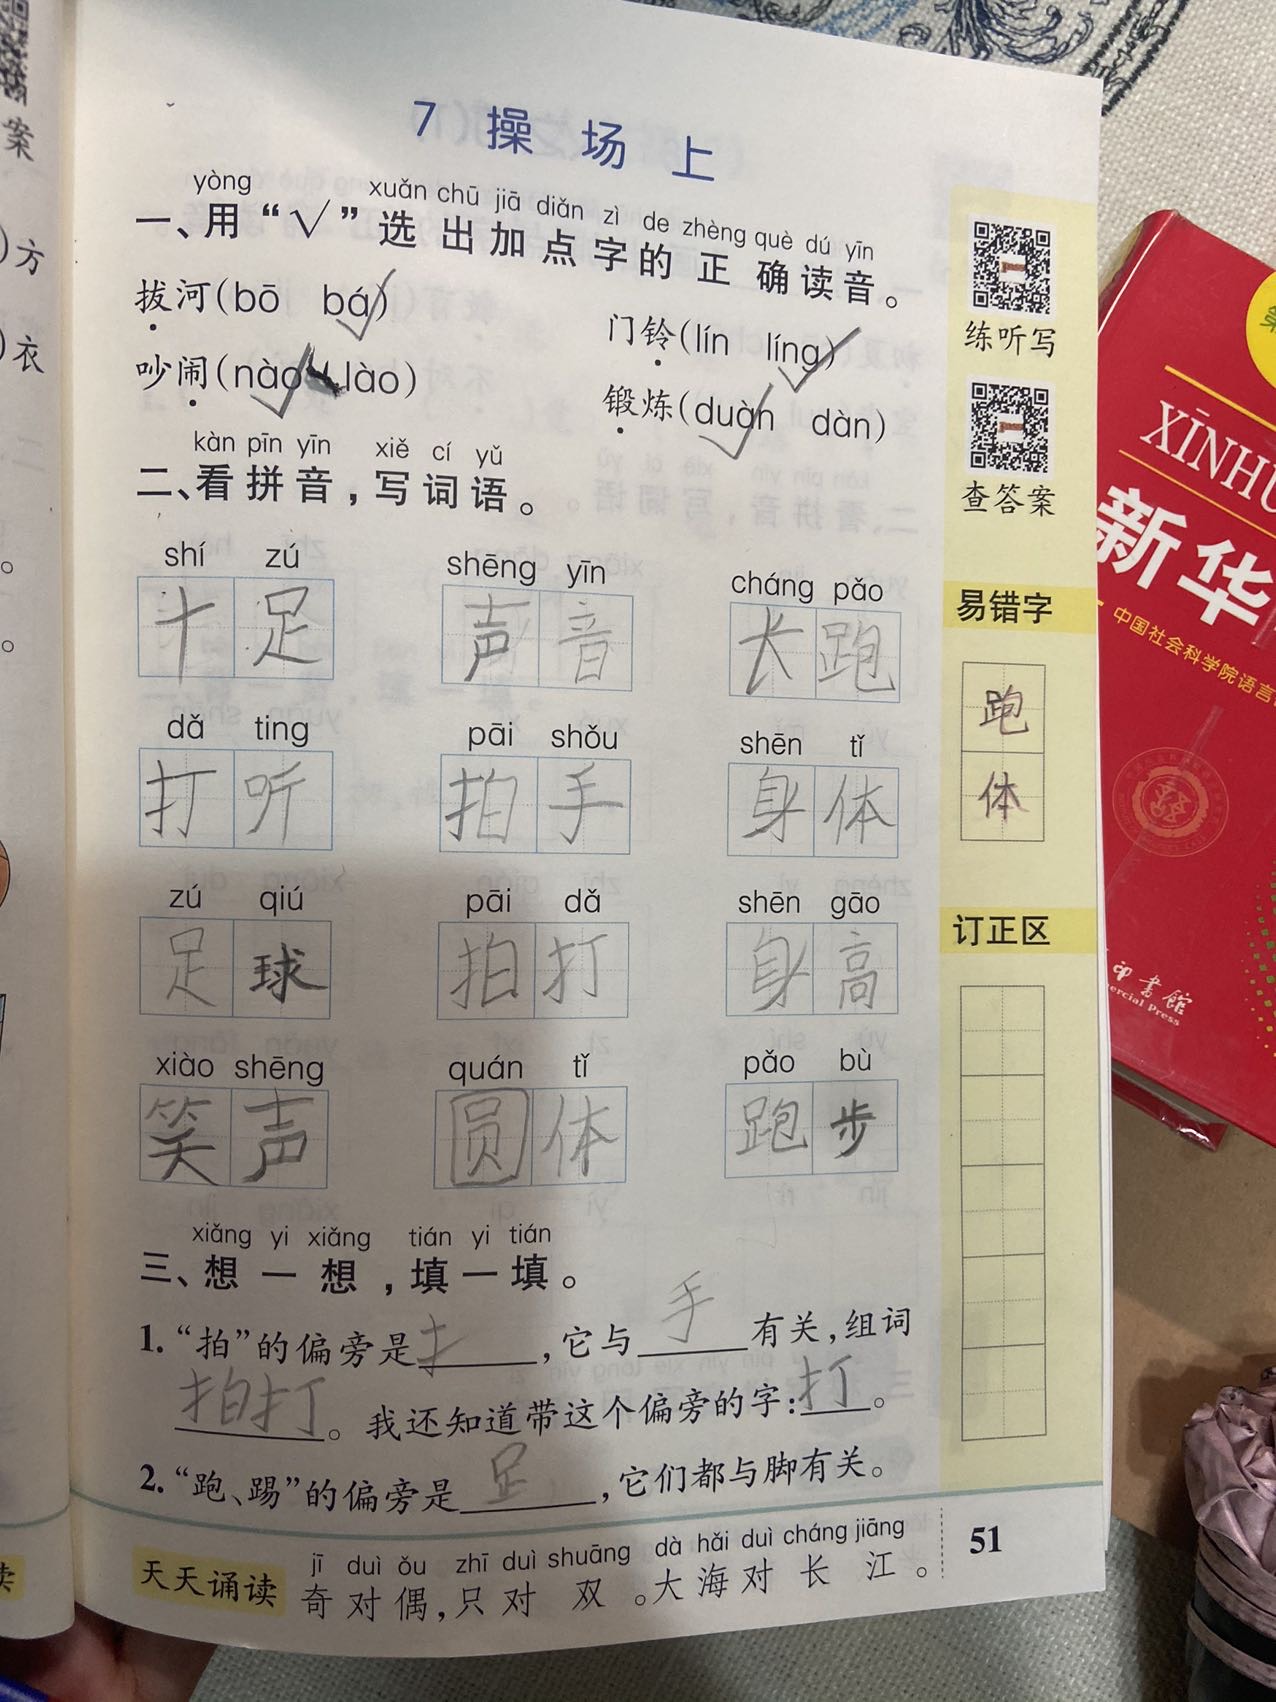 7 操场上
yòng xuǎn chū jiā diǎn zì de zhèng què dú yīn
一、用“√”选出加点字的正确读音。
拔河(bō bá) 门铃(lín líng)
吵闹(nào lào) 锻炼(duàn dàn)
kàn pīn yīn xiě cí yǔ
二、看拼音,写词语。
shí zú shēng yīn cháng pǎo
十足 声音 长跑
dǎ ting pāi shǒu shēn tǐ
打听 拍手 身体
zú qiú pāi dǎ shēn gāo
足球 拍打 身高
xiào shēng quán tǐ pǎo bù
笑声 圆体 跑步
xiǎng yi xiǎng tián yi tián
三、想一想,填一填。
1.“拍”的偏旁是扌,它与手有关,组词
拍打。我还知道带这个偏旁的字:打。
2.“跑、踢”的偏旁是𧾷,它们都与脚有关。
jī duì ǒu zhī duì shuāng dà hǎi duì cháng jiāng
天天诵读 奇对偶,只对双。大海对长江。
51
练听写
查答案
易错字
跑
体
订正区
案
)方
)衣
。
。
读
XĪNHU
新华
中国社会科学院语言
印书馆
ercial Press